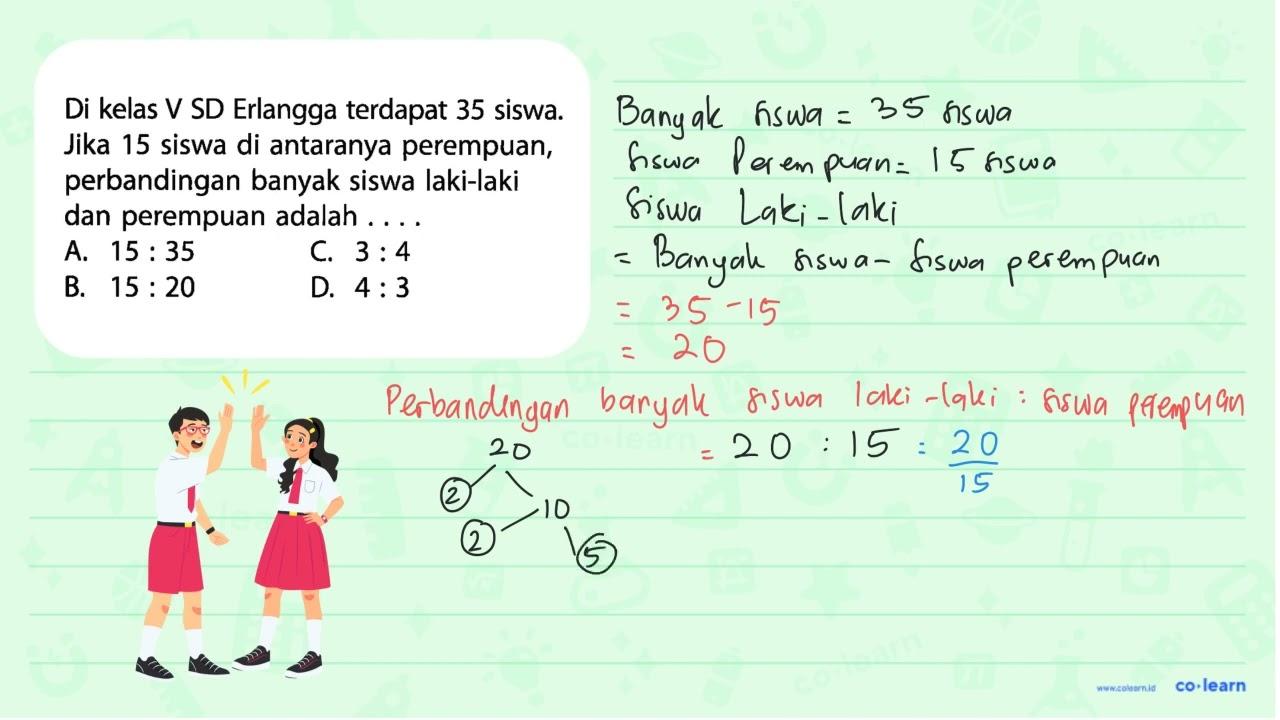 Di kelas V SD Erlangga terdapat 35 siswa.
Jika 15 siswa di antaranya perempuan,
perbandingan banyak siswa laki-laki
dan perempuan adalah . . . .
A. 15 : 35 C. 3 : 4
B. 15 : 20 D. 4 : 3
Banyak siswa = 35 siswa
Siswa Perempuan = 15 siswa
Siswa Laki-laki
= Banyak siswa - siswa perempuan
= 35 - 15
= 20
Perbandingan banyak siswa laki-laki : siswa perempuan
= 20 : 15 = 20/15
20
2
10
2
5
co·learn
co·learn
co·learn
www.colearn.id co·learn